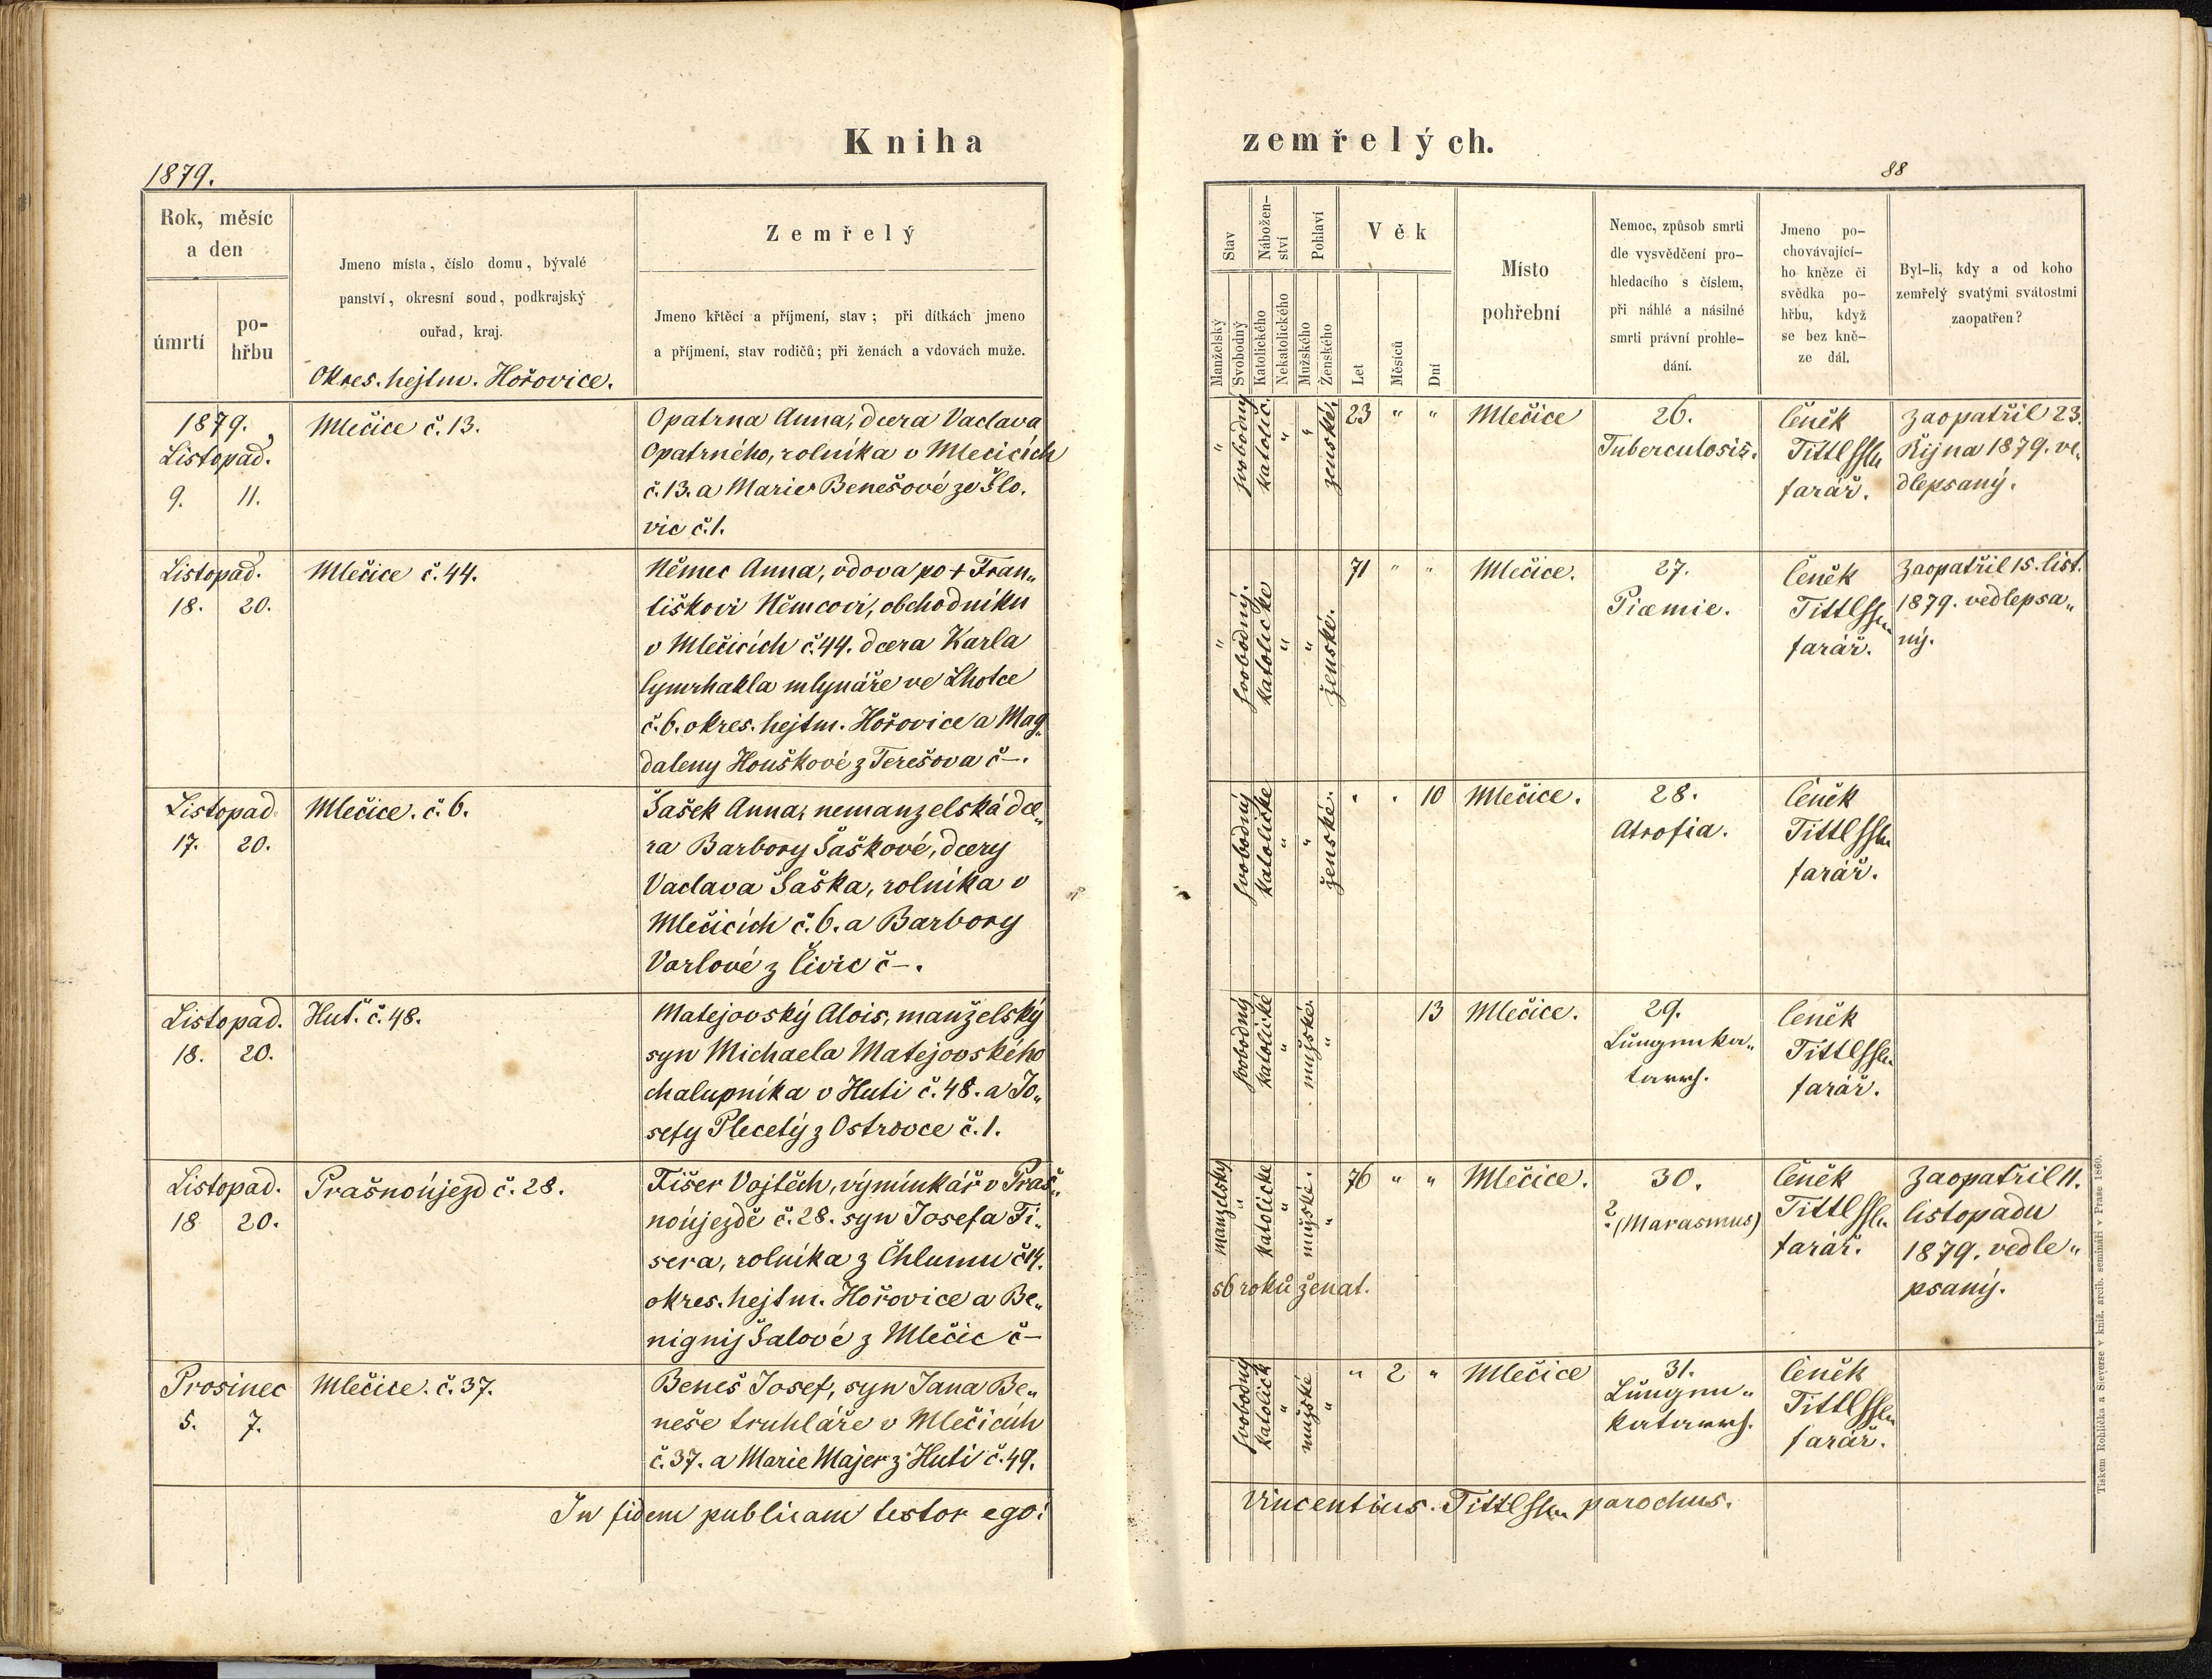 Kniha
zemřelých.
1879.
88
Rok, měsíc
a den
úmrtí
po-
hřbu
Jmeno místa, číslo domu, bývalé
panství, okresní soud, podkrajský
ouřad, kraj.
Okres. hejtm. Hořovice.
Zemřelý
Jmeno křtěcí a příjmení, stav; při dítkách jmeno
a příjmení, stav rodičů; při ženách a vdovách muže.
Stav
Manželský
Svobodný
Nábožen-
ství
Katolického
Nekatolického
Pohlaví
Mužského
Ženského
Věk
Let
Měsíců
Dní
Místo
pohřební
Nemoc, způsob smrti
dle vysvědčení pro-
hledacího s číslem,
při náhlé a násilné
smrti právní prohle-
dání.
Jmeno po-
chovávající-
ho kněze či
svědka po-
hřbu, když
se bez kně-
ze dál.
Byl-li, kdy a od koho
zemřelý svatými svátostmi
zaopatřen?
1879.
Listopad.
9. 11.
Mlečice č. 13.
Opatrna Anna, dcera Vaclava
Opatrného, rolníka v Mlecicích
č. 13. a Marie Benešové ze Šlo,
vic č. 1.
" svobodný katolic. " " ženské.
23 " "
Mlečice
26.
Tuberculosis.
Čeněk
Tittl
farář.
Zaopatřil 23.
Října 1879. ve,
dlepsaný.
Listopad.
18. 20.
Mlečice č. 44.
Němec Anna, vdova po + Fran„
tiškovi Němcovi, obchodníku
v Mlečicích č. 44. dcera Karla
Cymrhakla mlynáře ve Lhotce
č. 6. okres. hejtm. Hořovice a Mag„
daleny Houškové z Terešova č –.
" svobodný. katolické " " ženské.
71 " "
Mlečice.
27.
Piæmie.
Čeněk
Tittl
farář.
Zaopatřil 15. list.
1879. vedlepsa„
ný.
Listopad
17. 20.
Mlečice. č. 6.
Šašek Anna, nemanzelská dce„
ra Barbory Šaškové, dcery
Vaclava Šaška, rolníka v
Mlečicích č. 6. a Barbory
Varlové z Čivic č –.
svobodný katolické " " ženské.
" " 10
Mlečice.
28.
Atrofia.
Čeněk
Tittl
farář.
Listopad.
18. 20.
Huť. č. 48.
Matejovský Alois, manželský
syn Michaela Matejovského
chalupníka v Huti č. 48. a Jo„
sefy Plecetý z Ostrovce č. 1.
svobodný katolické " mužské. "
13
Mlečice.
29.
Lungenka„
tarrh.
Čeněk
Tittl
farář.
Listopad.
18 20.
Prašnoújezd č. 28.
Fišer Vojtěch, výminkář v Praš„
noújezdě č. 28. syn Josefa Fi„
sera, rolníka z Chlumu č 14.
okres. hejtm. Hořovice a Be„
nigny Šalové z Mlečic č –
manželský " katolické " mužské. "
56 roků ženat.
76 " "
Mlečice.
30.
? (Marasmus)
Čeněk
Tittl
farář.
Zaopatřil 11.
listopadu
1879. vedle„
psaný.
Prosinec
5. 7.
Mlečice. č. 37.
Beneš Josef, syn Jana Be„
neše truhláře v Mlečicích
č. 37. a Marie Majer z Huti č. 49.
svobodný katolick " mužské "
" 2 "
Mlečice
31.
Lungen„
katarrh.
Čeněk
Tittl
farář.
In fidem publicam testor ego:
Vincentius. Tittl parochus.
Tiskem Rohlíčka a Sieverse v kníž. arcib. semináři v Praze 1860.